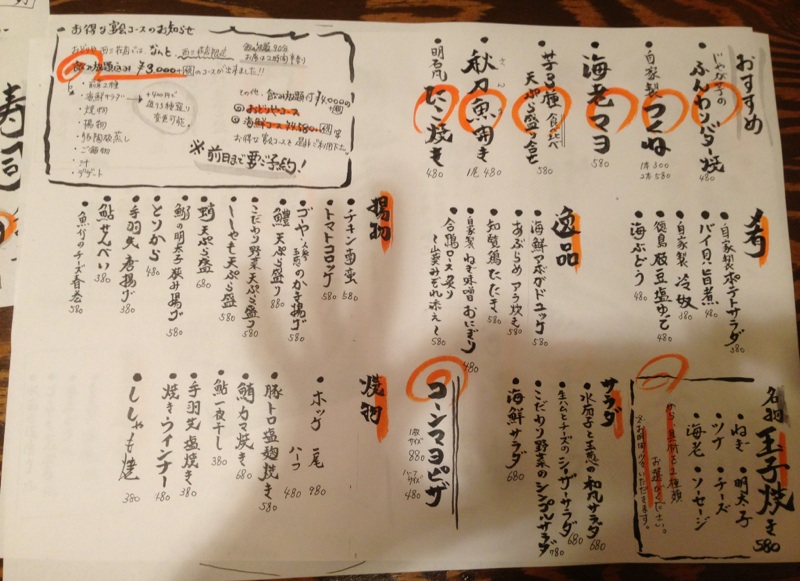 おすすめ
じゃが芋の
ふんわりバター焼
480
自家製つくね
1本 300
2本 580
海老マヨ
580
芋3種 食べ比べ
天ぷら盛り合せ
580
秋刀魚開き
1尾 480
明石風
たこ焼き
480
お得な宴会コースのお知らせ
なんと
飲み放題込み ¥3,000
のコースが出来ました!!
・海鮮サラダ
・焼物
・揚物
・ご飯物
・汁
・デザート
+400円で
変更可能。
※前日まで要ご予約!
肴
・自家製ポテトサラダ
380
・バイ貝旨煮
480
・自家製 冷奴
380
・徳島 枝豆塩ゆで
480
・海ぶどう
480
逸品
・海鮮アボカドユッケ
580
・あぶらめ アラ炊き
580
・知覧鶏たたき
580
・自家製 ねぎ味噌おにぎり
480
・合鴨ロース炙り
〜山葵みぞれ添え〜
580
揚物
・チキン南蛮
580
・トマトコロッケ
380
・ゴーヤ・人参・玉葱のかき揚げ
580
・鱧 天ぷら盛り
880
・こだわり野菜天ぷら盛り
580
・ししゃも天ぷら盛
580
・蛸 天ぷら盛
680
・鰯の明太子挟み揚げ
580
・とりから
480
・手羽先 唐揚げ
380
・鮎せんべい
380
580
名物 玉子焼き
580
・ねぎ ・明太子
・ツナ ・チーズ
・海老 ・ソーセージ
お選び下さい。
サラダ
・水茄子と玉葱の和風サラダ
680
・生ハムとチーズのシーザーサラダ
680
・こだわり野菜のシンプルサラダ
780
・海鮮サラダ
680
コーンマヨピザ
1枚サイズ
880
ハーフサイズ
480
焼物
・ホッケ 一尾
980
ハーフ
480
・豚トロ塩麹焼き
580
・鯖カマ焼き
680
・鮎一夜干し
380
・手羽先塩焼き
380
・焼きウインナー
480
・ししゃも焼
380